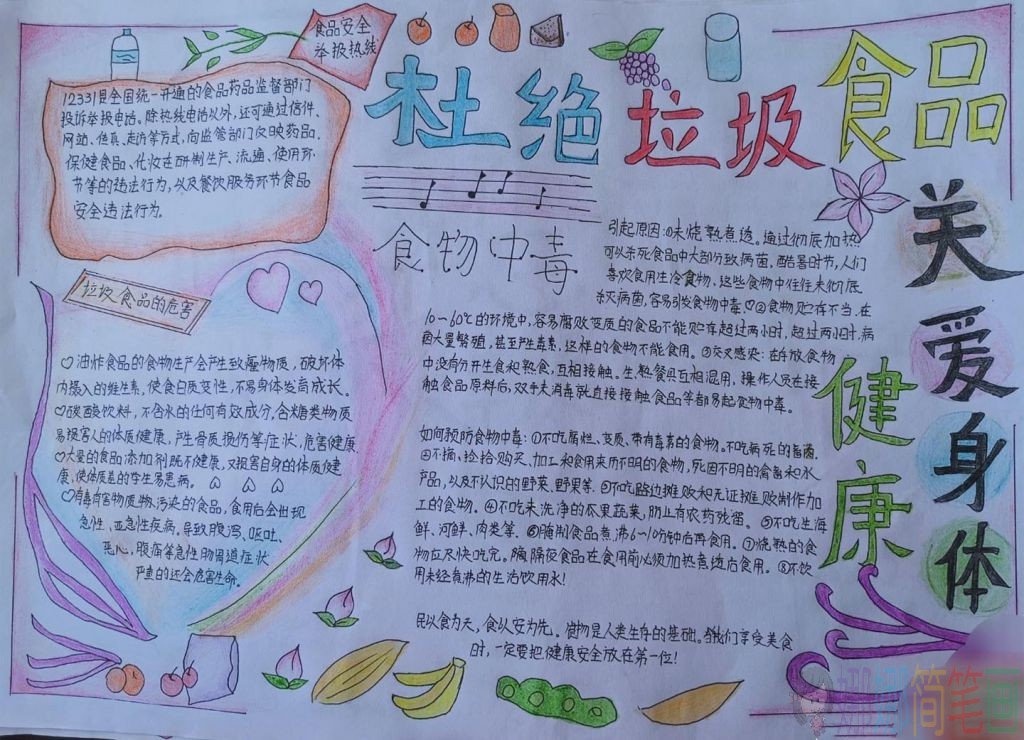 食品安全
举报热线
杜绝垃圾食品
关爱身体
健康
12331是全国统一开通的食品药品监督部门
投诉举报电话。除热线电话以外,还可通过信件、
网站、传真、走访等方式,向监管部门反映药品、
保健食品、化妆在研制生产、流通、使用环
节等的违法行为,以及餐饮服务环节食品
安全违法行为。
垃圾食品的危害
油炸食品的食物生产会产生致癌物质,破坏体
内摄入的维生素,使食日质变性,不易身体发育成长。
碳酸饮料,不含水的任何有效成分,含糖类物质
易损害人的体质健康,产生骨质损伤等症状,危害健康
大量的食品添加剂既不健康,又损害自身的体质健
康,使体质差的学生易患病。
有毒有害物质物污染的食品,食用后会出现
急性、亚急性疾病。导致腹泻、呕吐、
恶心、腹痛等急性肠胃道症状
严重的还会危害生命。
食物中毒
引起原因:①未烧熟煮透。通过彻底加热
可以杀死食品中大部分致病菌,酷暑时节,人们
喜欢食用生冷食物,这些食物中往往未彻底
杀灭病菌,容易引发食物中毒。②食物贮存不当,在
10-60℃的环境中,容易腐败变质的食品不能贮存超过两小时,超过两小时,病
菌大量繁殖,甚至产生毒素,这样的食物不能食用。③交叉感染:在存放食物
中没有分开生食和熟食,互相接触。生、熟餐具互相混用,操作人员在接
触食品原料后,双手未消毒就直接接触食品等都易起食物中毒。
如何预防食物中毒:①不吃腐烂、变质、带有毒素的食物。不吃病死的畜禽。
②不捕、捡拾、购买、加工和食用来历不明的食物,死因不明的禽畜和水
产品,以及不认识的野菜、野果等。③不吃路边摊贩和无证摊贩制作加
工的食物。④不吃未洗净的瓜果蔬菜,防止有农药残留。⑤不吃生海
鲜、河鲜、肉类等。⑥腌制食品煮沸6~10分钟后再食用。⑦烧熟的食
物应尽快吃完。隔夜食品在食用前必须加热煮透后食用。⑧不饮
用未经煮沸的生活饮用水!
民以食为天,食以安为先。食物是人类生存的基础。我们享受美食
时,一定要把健康安全放在第一位!
简笔画